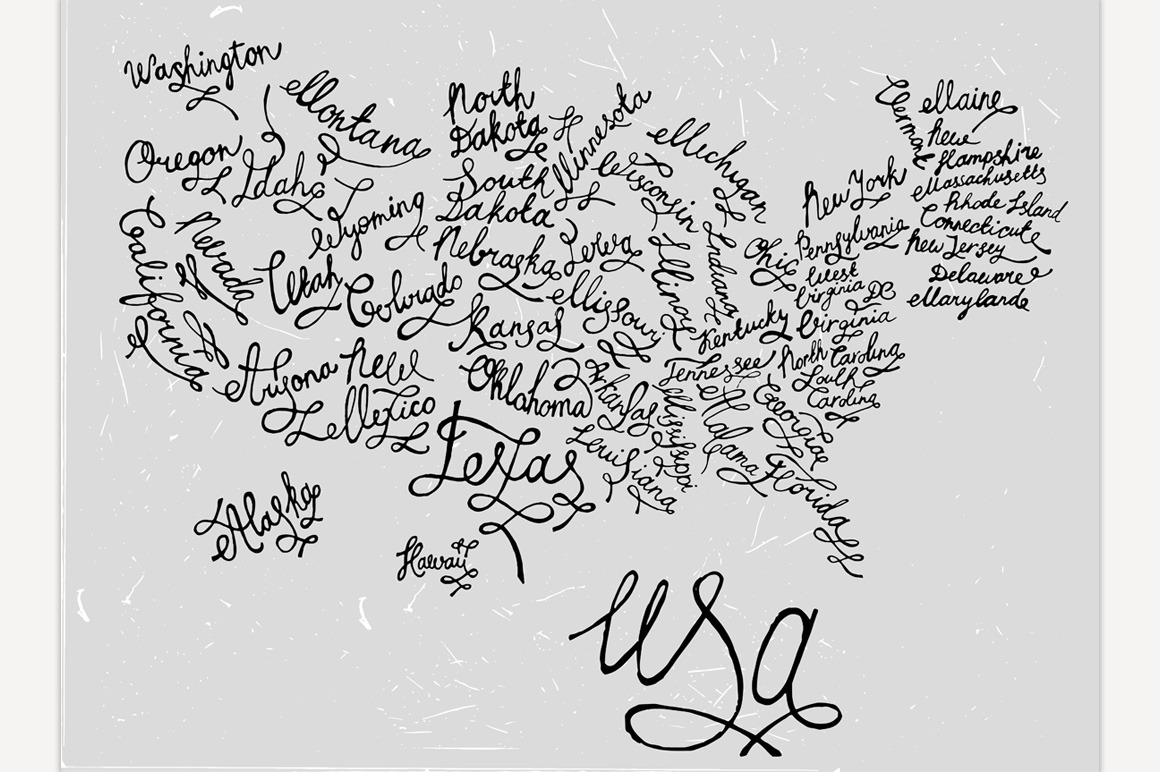 Washington
Montana
North
Dakota
Minnesota
Michigan
Vermont
Maine
New
Hampshire
Massachusetts
Rhode Island
Connecticute
New Jersey
Delaware
Marylande
Oregon
Idaho
Wyoming
South
Dakota
Wisconsin
New York
Pennsylvania
West
Virginia
DC
Virginia
California
Nevada
Utah
Colorado
Nebraska
Iowa
Illinois
Indiana
Ohio
Kansas
Missoury
Kentucky
Tennessee
North Carolina
South
Carolina
Arizona
New
Mexico
Oklahoma
Arkansas
Mississippi
Alabama
Georgiae
Texas
Louisiana
Florida
Alaska
Hawaii
USA